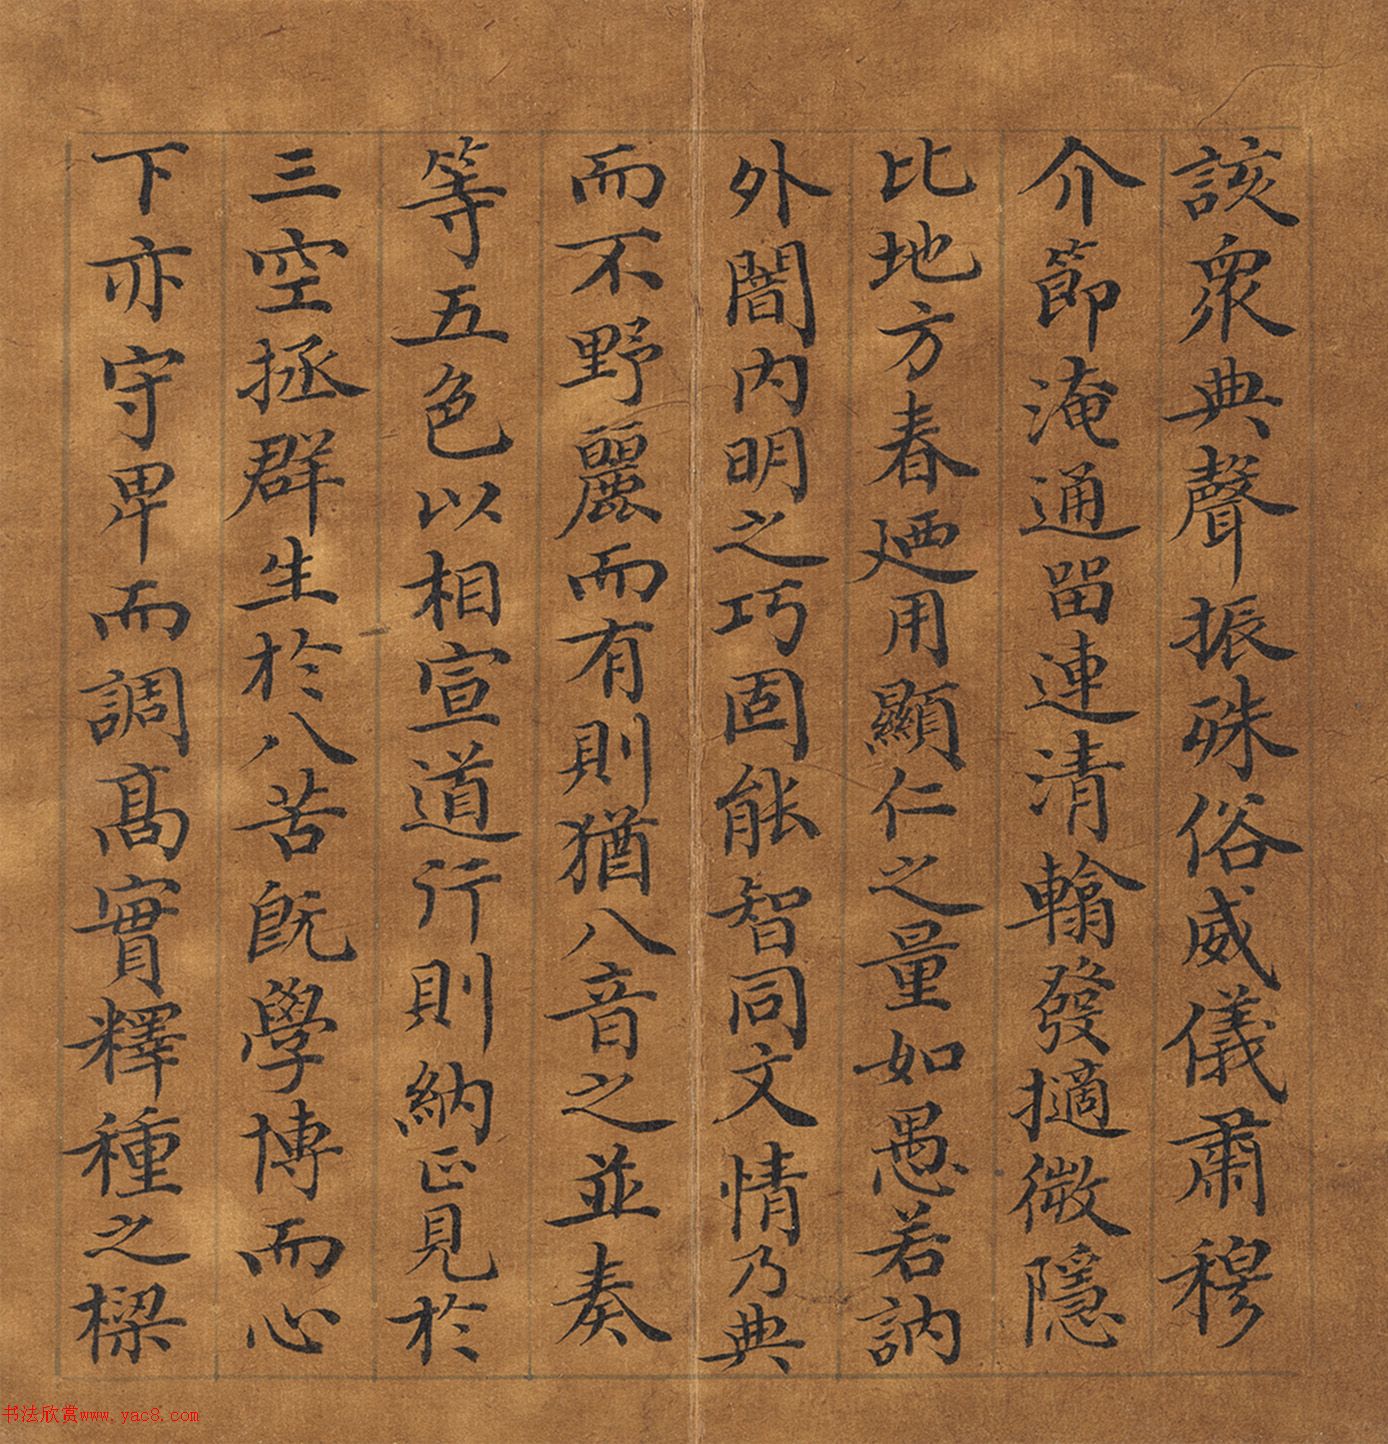 該衆典聲振殊俗威儀肅穆
介節淹通留連清翰發擿微隱
比地方春廼用顯仁之量如愚若訥
外闇内明之巧固能智同文情乃典
而不野麗而有則猶八音之並奏
等五色以相宣道行則納正見於
三空拯群生於八苦既學博而心
下亦守卑而調髙實釋種之樑
书法欣赏www.yac8.com